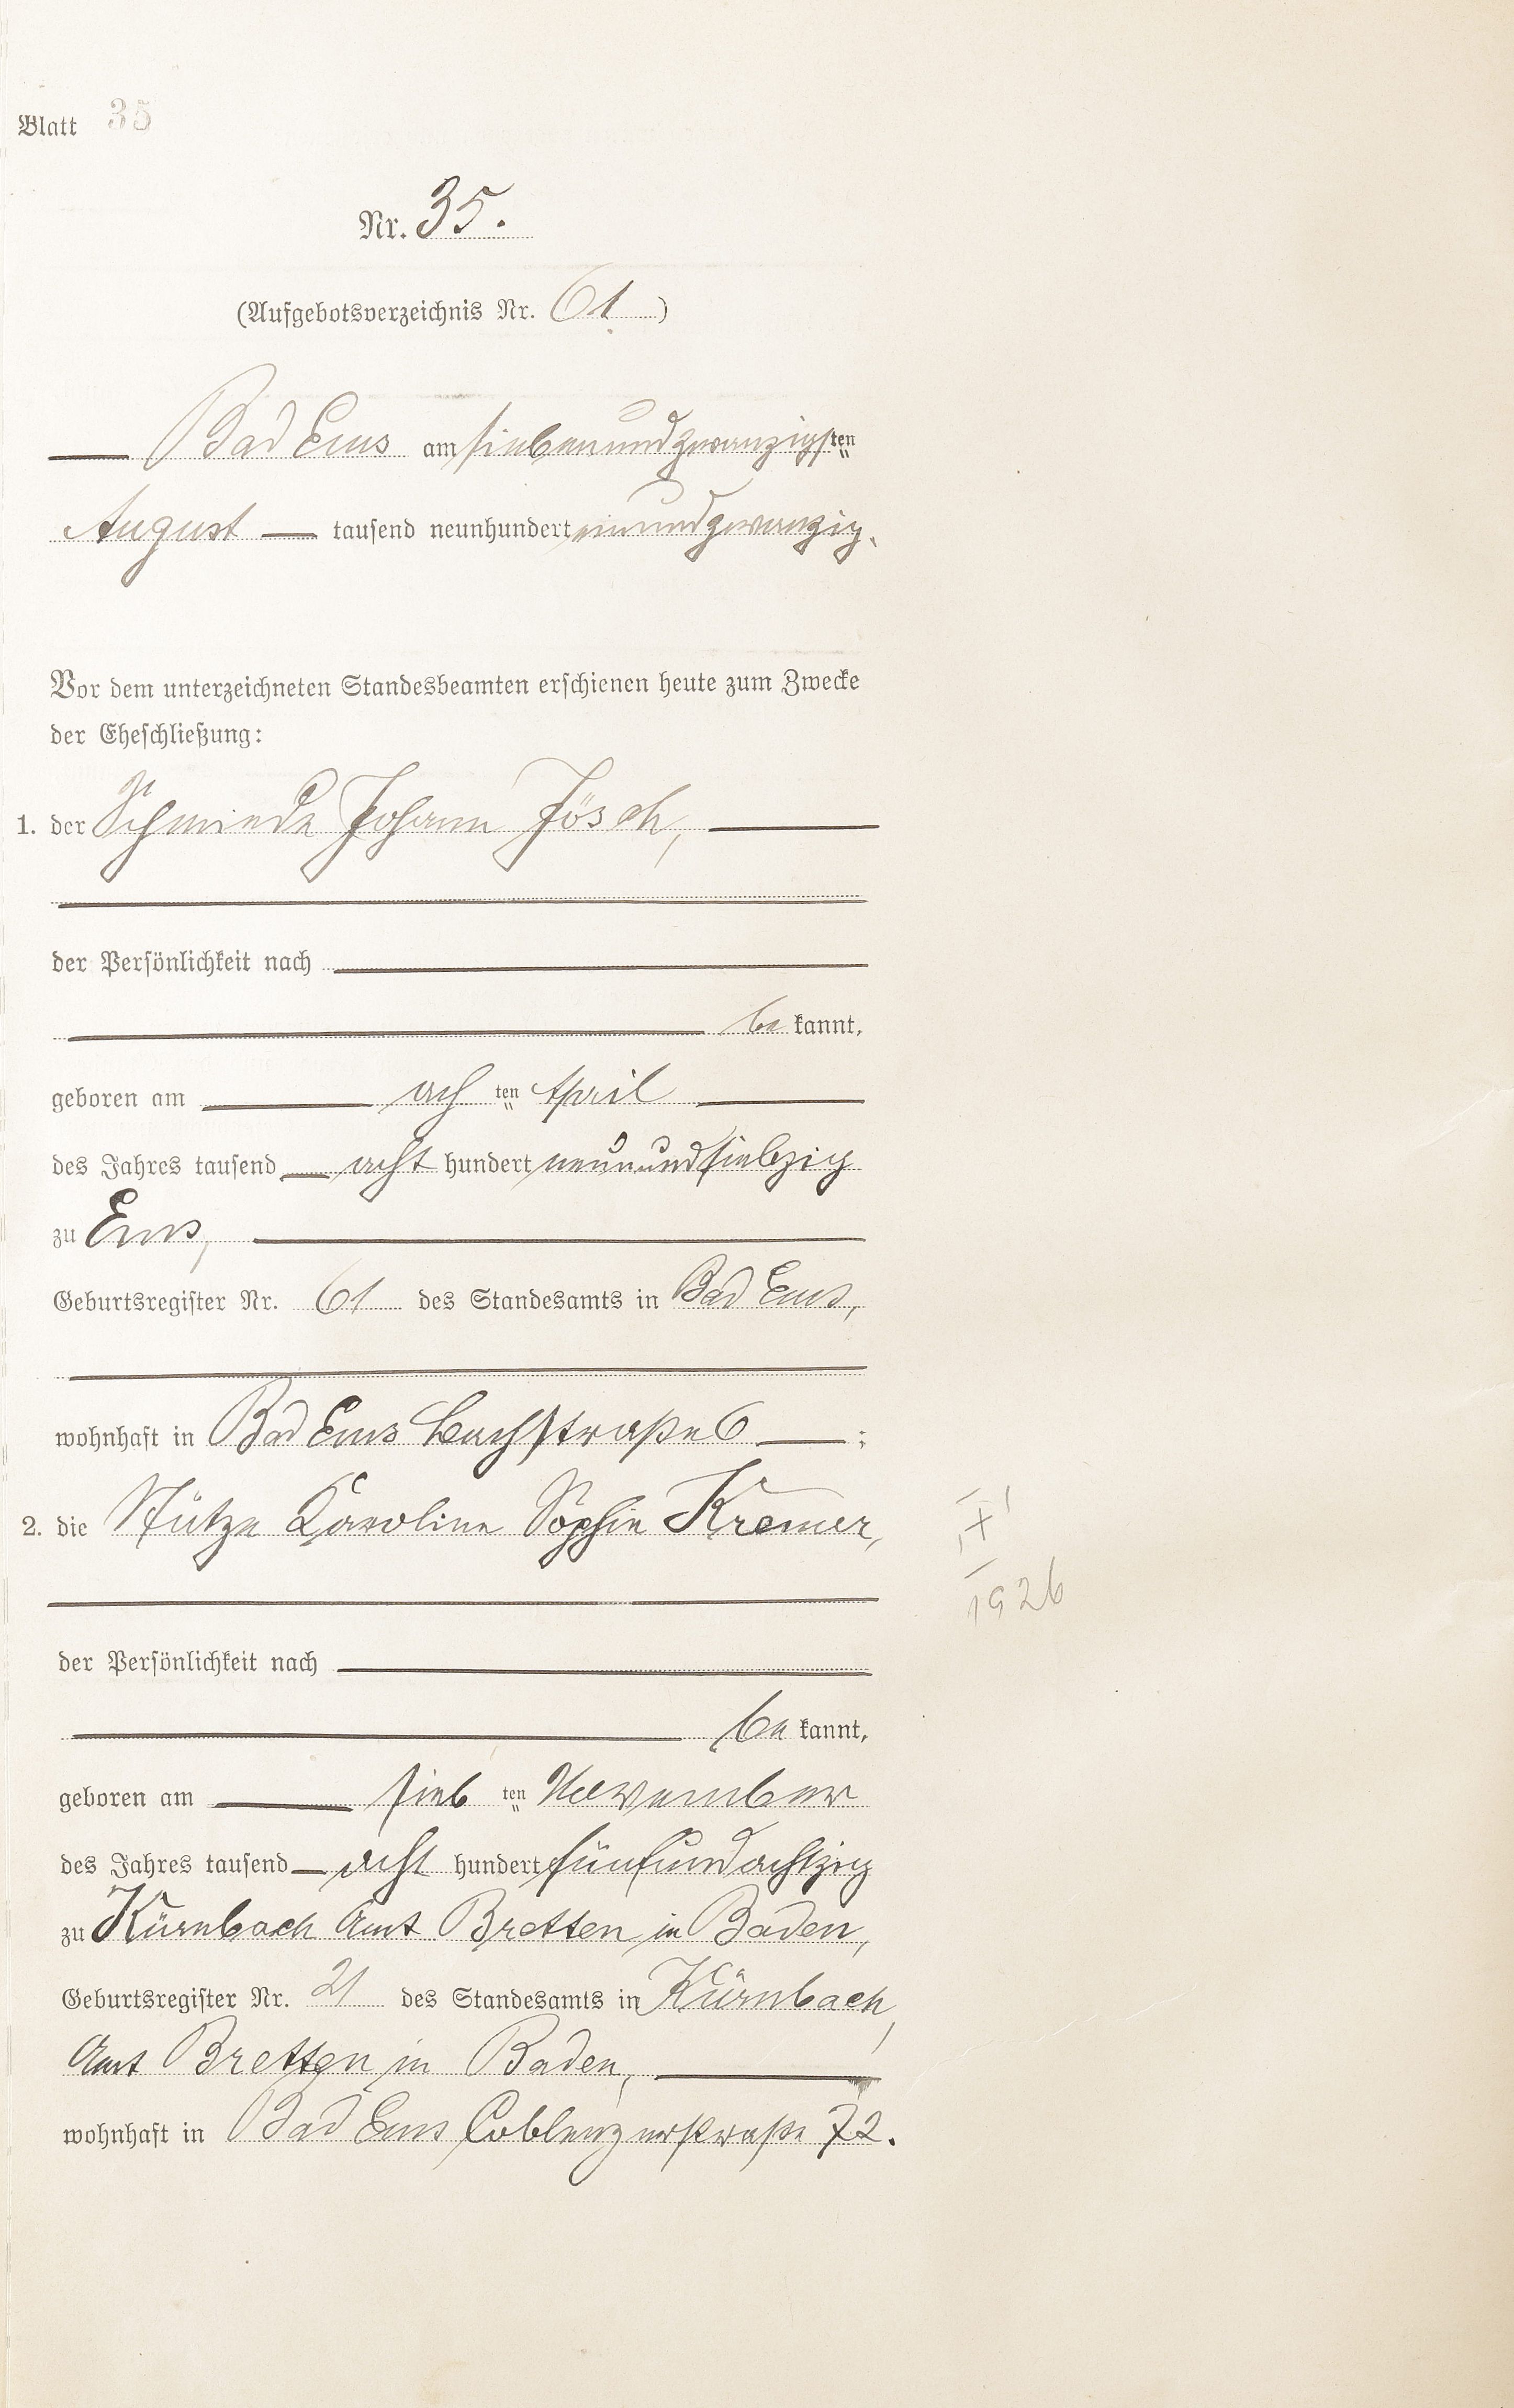 Blatt 35
Nr. 35.
(Aufgebotsverzeichnis Nr. 61)
Bad Ems am siebenundzwanzigsten
August tausend neunhundert einundzwanzig.
Vor dem unterzeichneten Standesbeamten erschienen heute zum Zwecke
der Eheschließung:
1. der Schmiede Johann Jösch,
der Persönlichkeit nach
be kannt,
geboren am ach ten April
des Jahres tausend acht hundert neunundsiebzig
zu Ems,
Geburtsregister Nr. 61 des Standesamts in Bad Ems,
wohnhaft in Bad Ems Bachstraße 6 ;
2. die Stütze Karoline Sophie Kremer,
1926
der Persönlichkeit nach
be kannt,
geboren am sieb ten November
des Jahres tausend acht hundert fünfundachtzig
zu Kürnbach Amt Bretten in Baden,
Geburtsregister Nr. 21 des Standesamts in Kürnbach,
Amt Bretten in Baden,
wohnhaft in Bad Ems Coblenzerstraße 72.